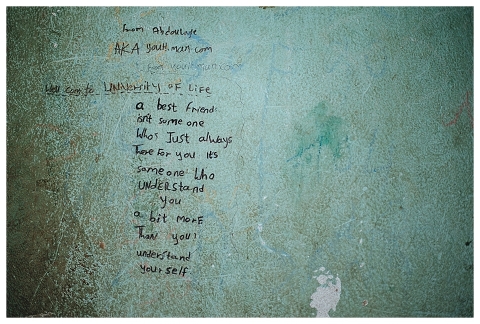 from Abdoulaye
AKA youthman.com
Well come to UNIVERSITY OF LIFE
a best friend
isn't some one
Who's Just always
There For you it's
someone Who
UNDERStand
you
a bit more
Than you
understand
yourself